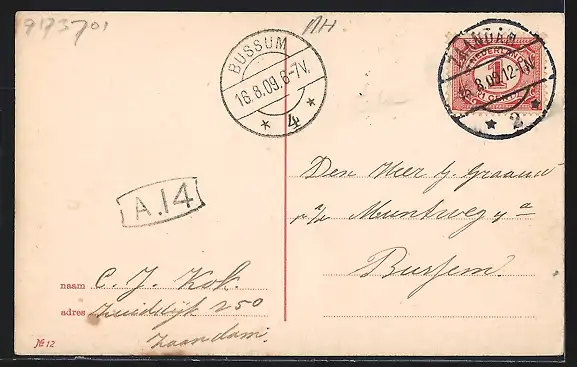 9173701
BUSSUM
16.8.09.6-7V.
* 4 *
ZAANDAM
16.8.09.12-1V.
* 2 *
NEDERLAND
1
CENT
A.14
Den Heer J. Graauw
Muntweg 4 a
Bussem.
naam C. J. Kok.
adres Zuiddijk 250
Zaandam.
№ 12